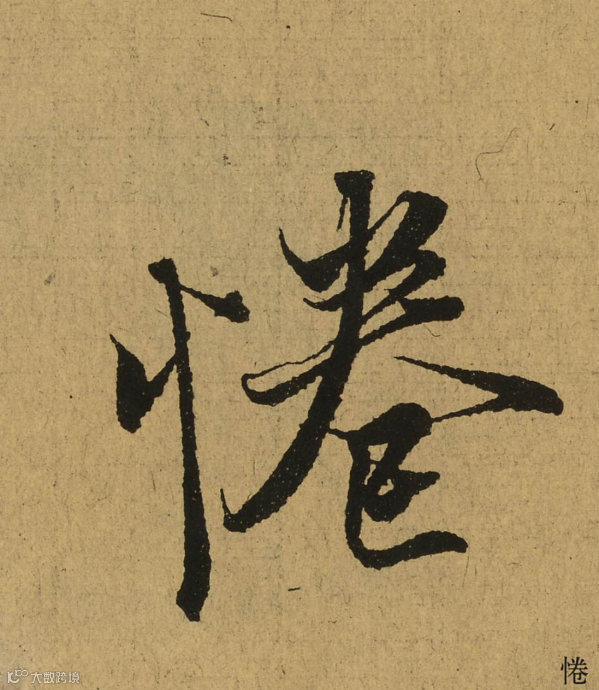 惓
惓
大数跨境